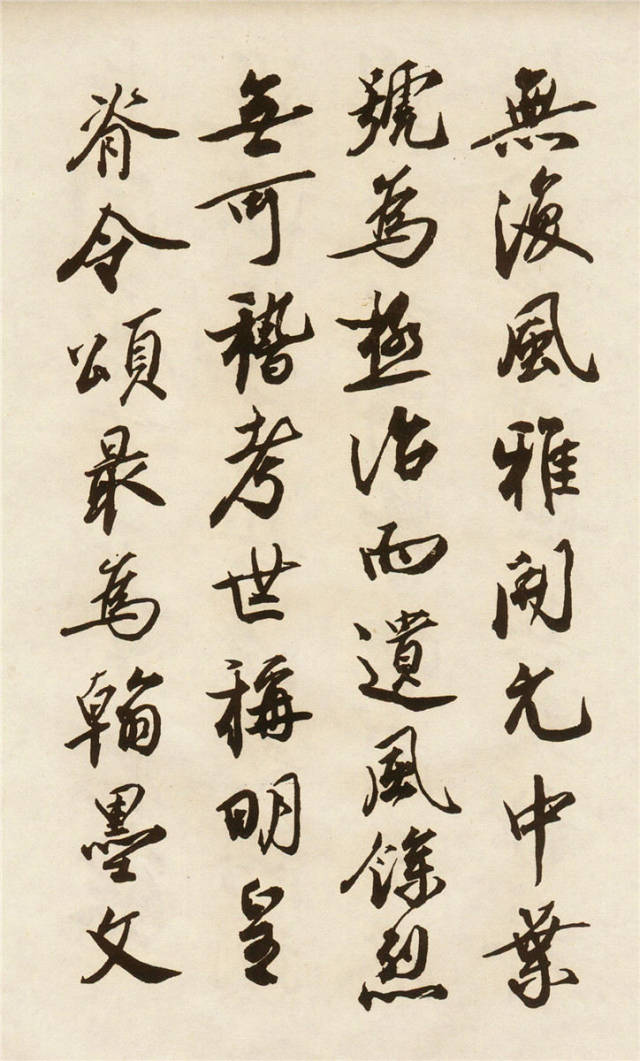 無復風雅開元中葉
號為極治而遺風餘烈
無可稽考世稱明皇
脊令頌最為翰墨文